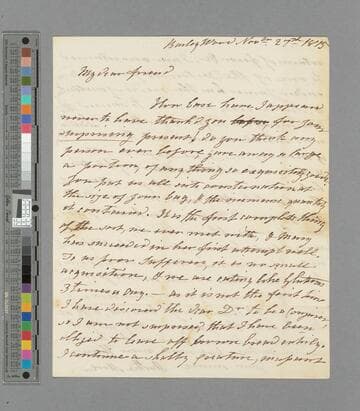 Burley Wood Nov. 27th 1815
My dear friend
How base have I appeared
never to have thank'd you before for your
surprising present, do you think any
person ever before gave away a large
a portion, of any thing so exquisitely good.
You put us all into consternation at
the size of your bag, & the immense quantity
it contained. It is the first complete thing
of the sort, we ever met with, & Mary
has succeeded in her first attempt well.
To us poor sufferers, it is no small
acquisition, & we are eating like gluttons
3 times a day. — as it is not the first time
I have discovered the dear Dr. to be a conjurer,
I am not surprised that I have been
obliged to leave off brown bread entirely.
I continue a shabby creature,